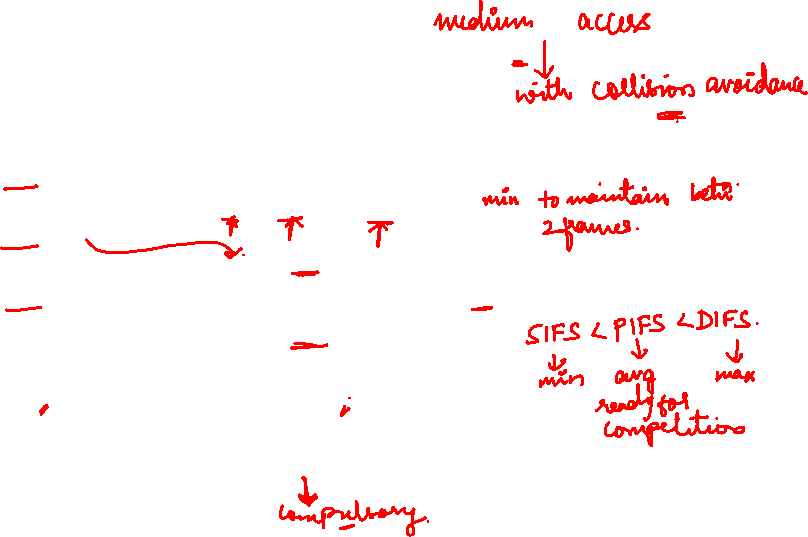 medium access
with collision avoidance
min to maintain betn
2 frames.
SIFS < PIFS < DIFS.
min avg max
ready for
competition
compulsory.